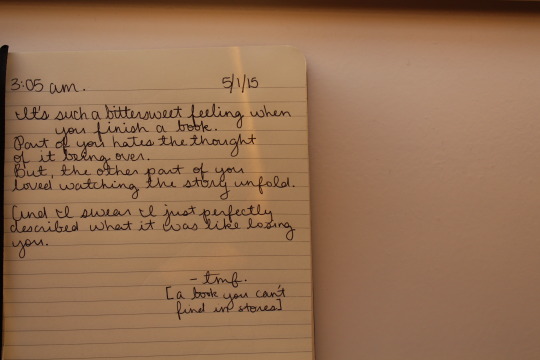 3:05 am. 5/1/15
It's such a bittersweet feeling when
you finish a book.
Part of you hates the thought
of it being over.
But, the other part of you
loved watching the story unfold.
And I swear I just perfectly
described what it was like losing
you.
- tmf.
[a book you can't
find in stores]